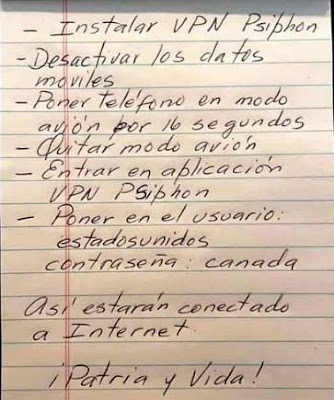 - Instalar VPN Psiphon
- Desactivar los datos
moviles
- Poner teléfono en modo
avión por 16 segundos
- Quitar modo avión
- Entrar en aplicación
VPN PSiphon
- Poner en el usuario:
estadosunidos
contraseña: canada
Así estarán conectado
a Internet.
¡Patria y Vida!